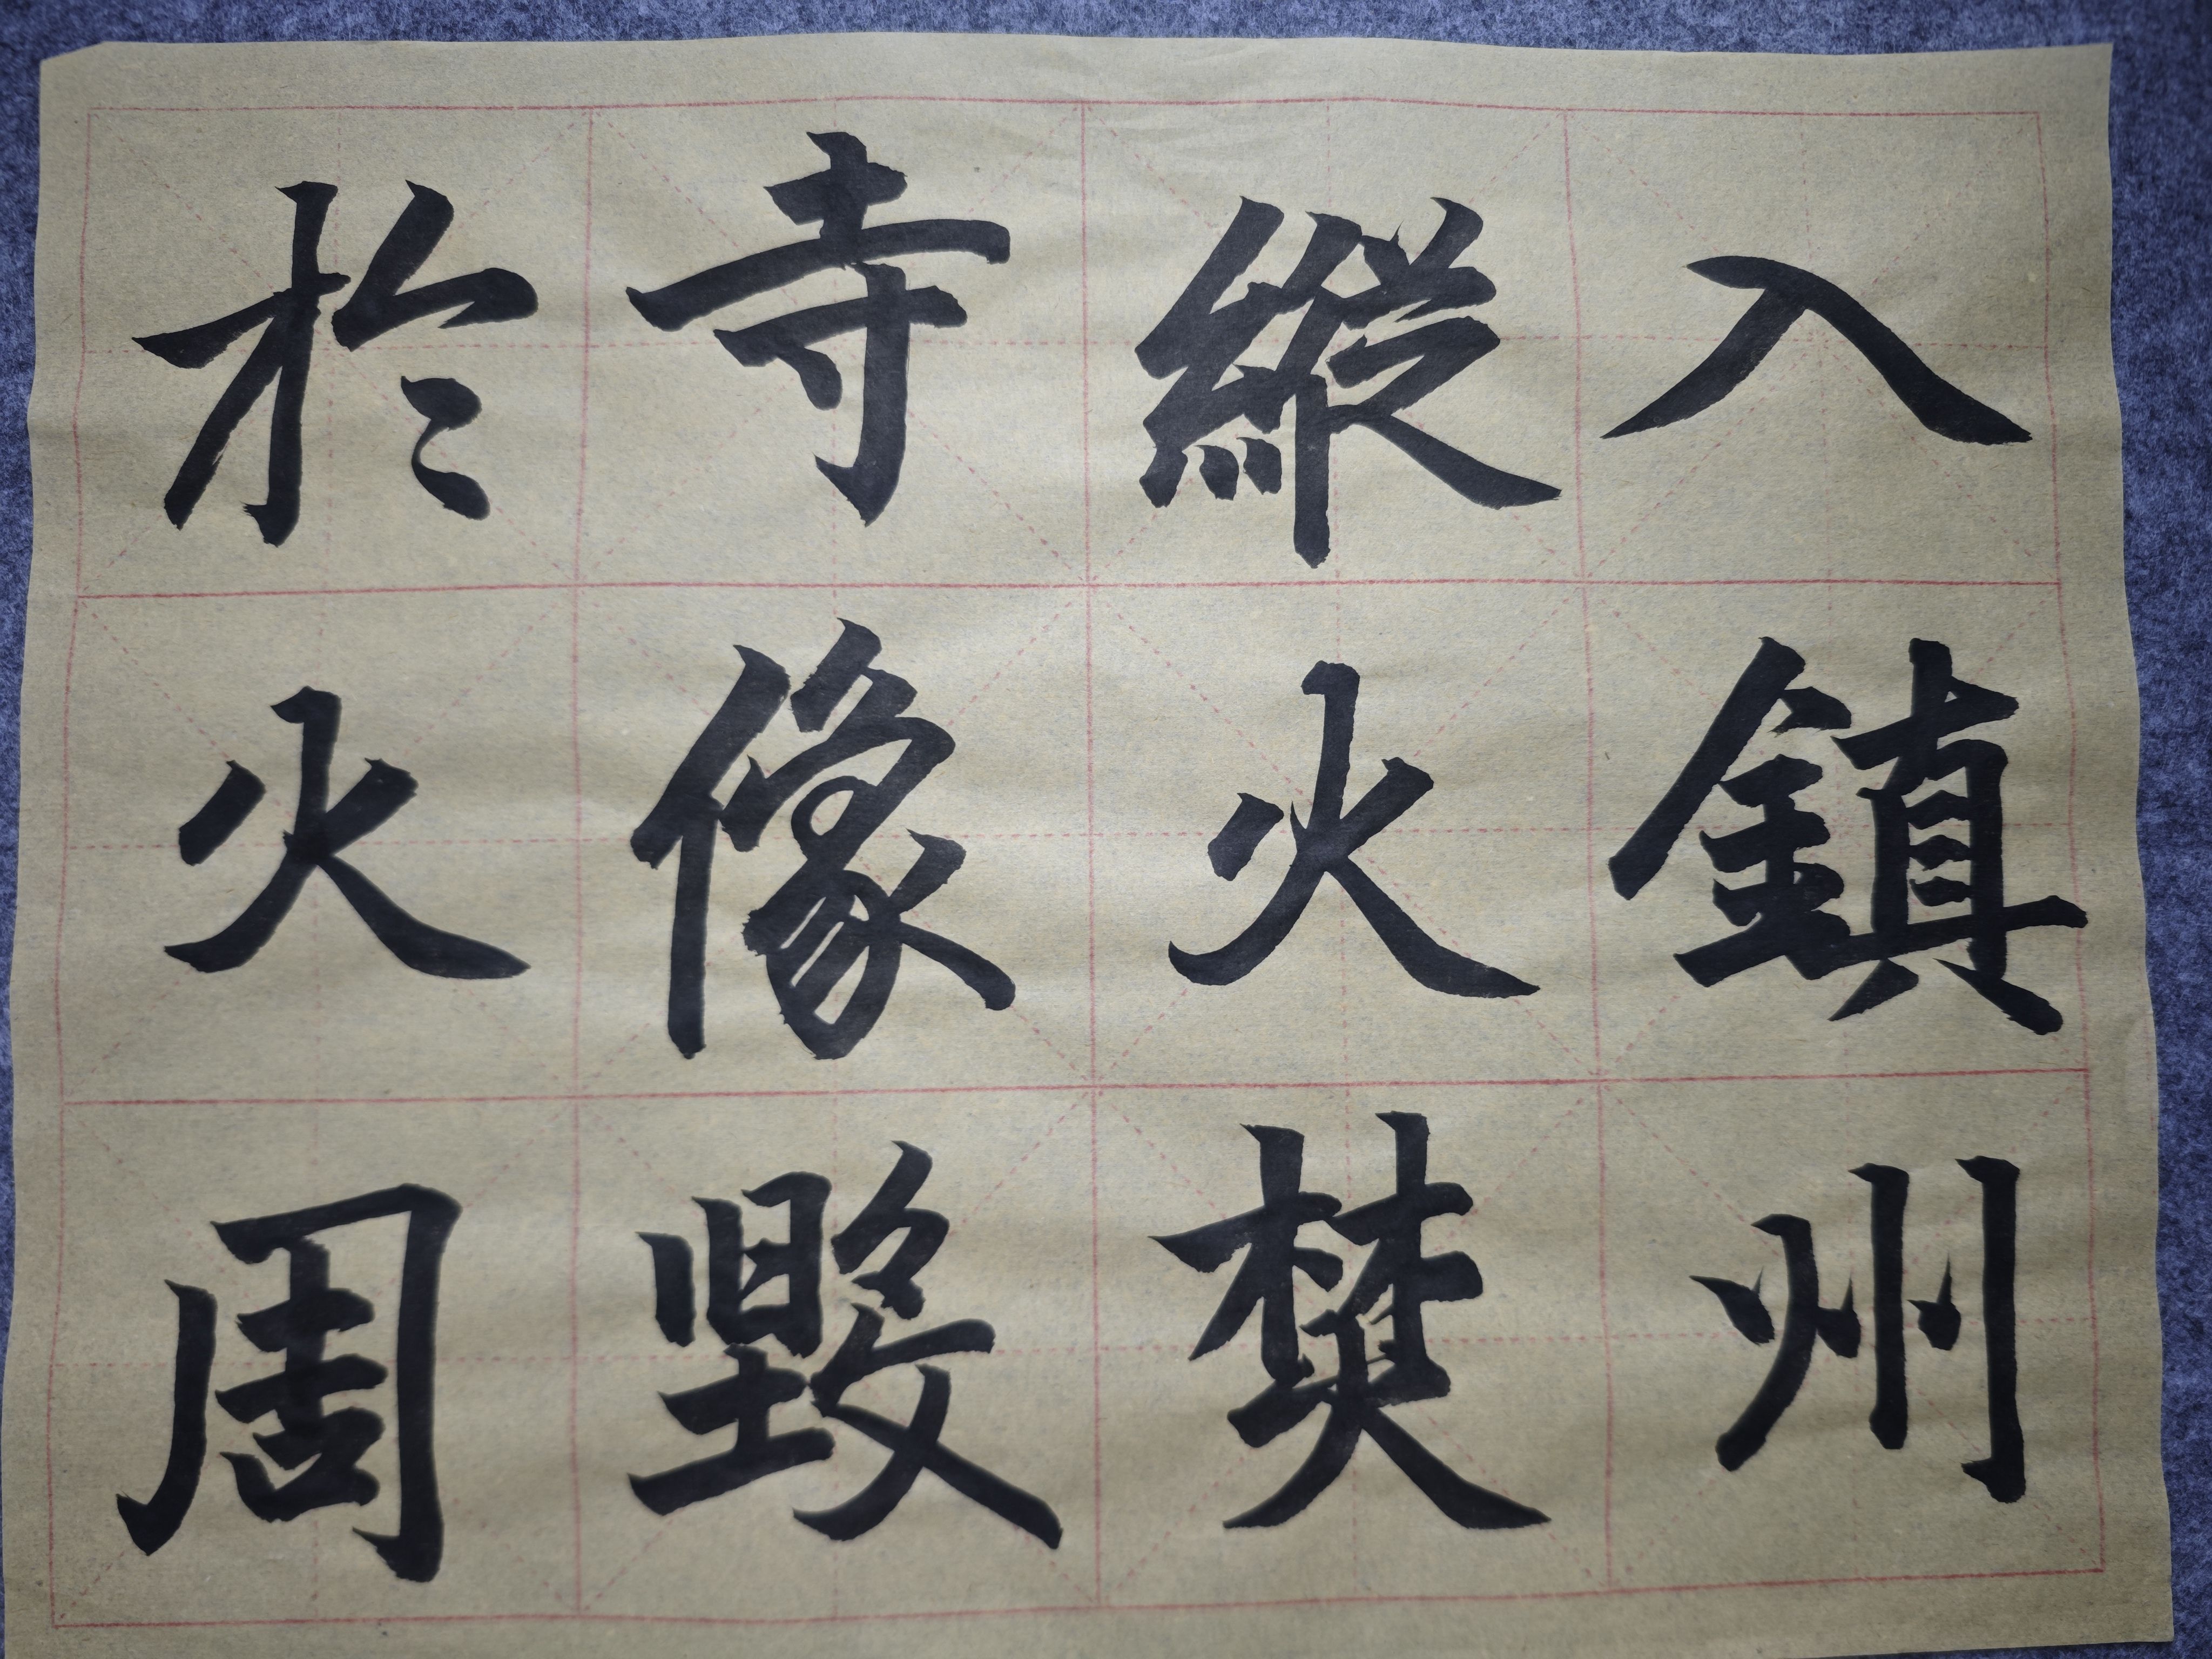 入鎮州
縱火焚
寺像毀
於火周